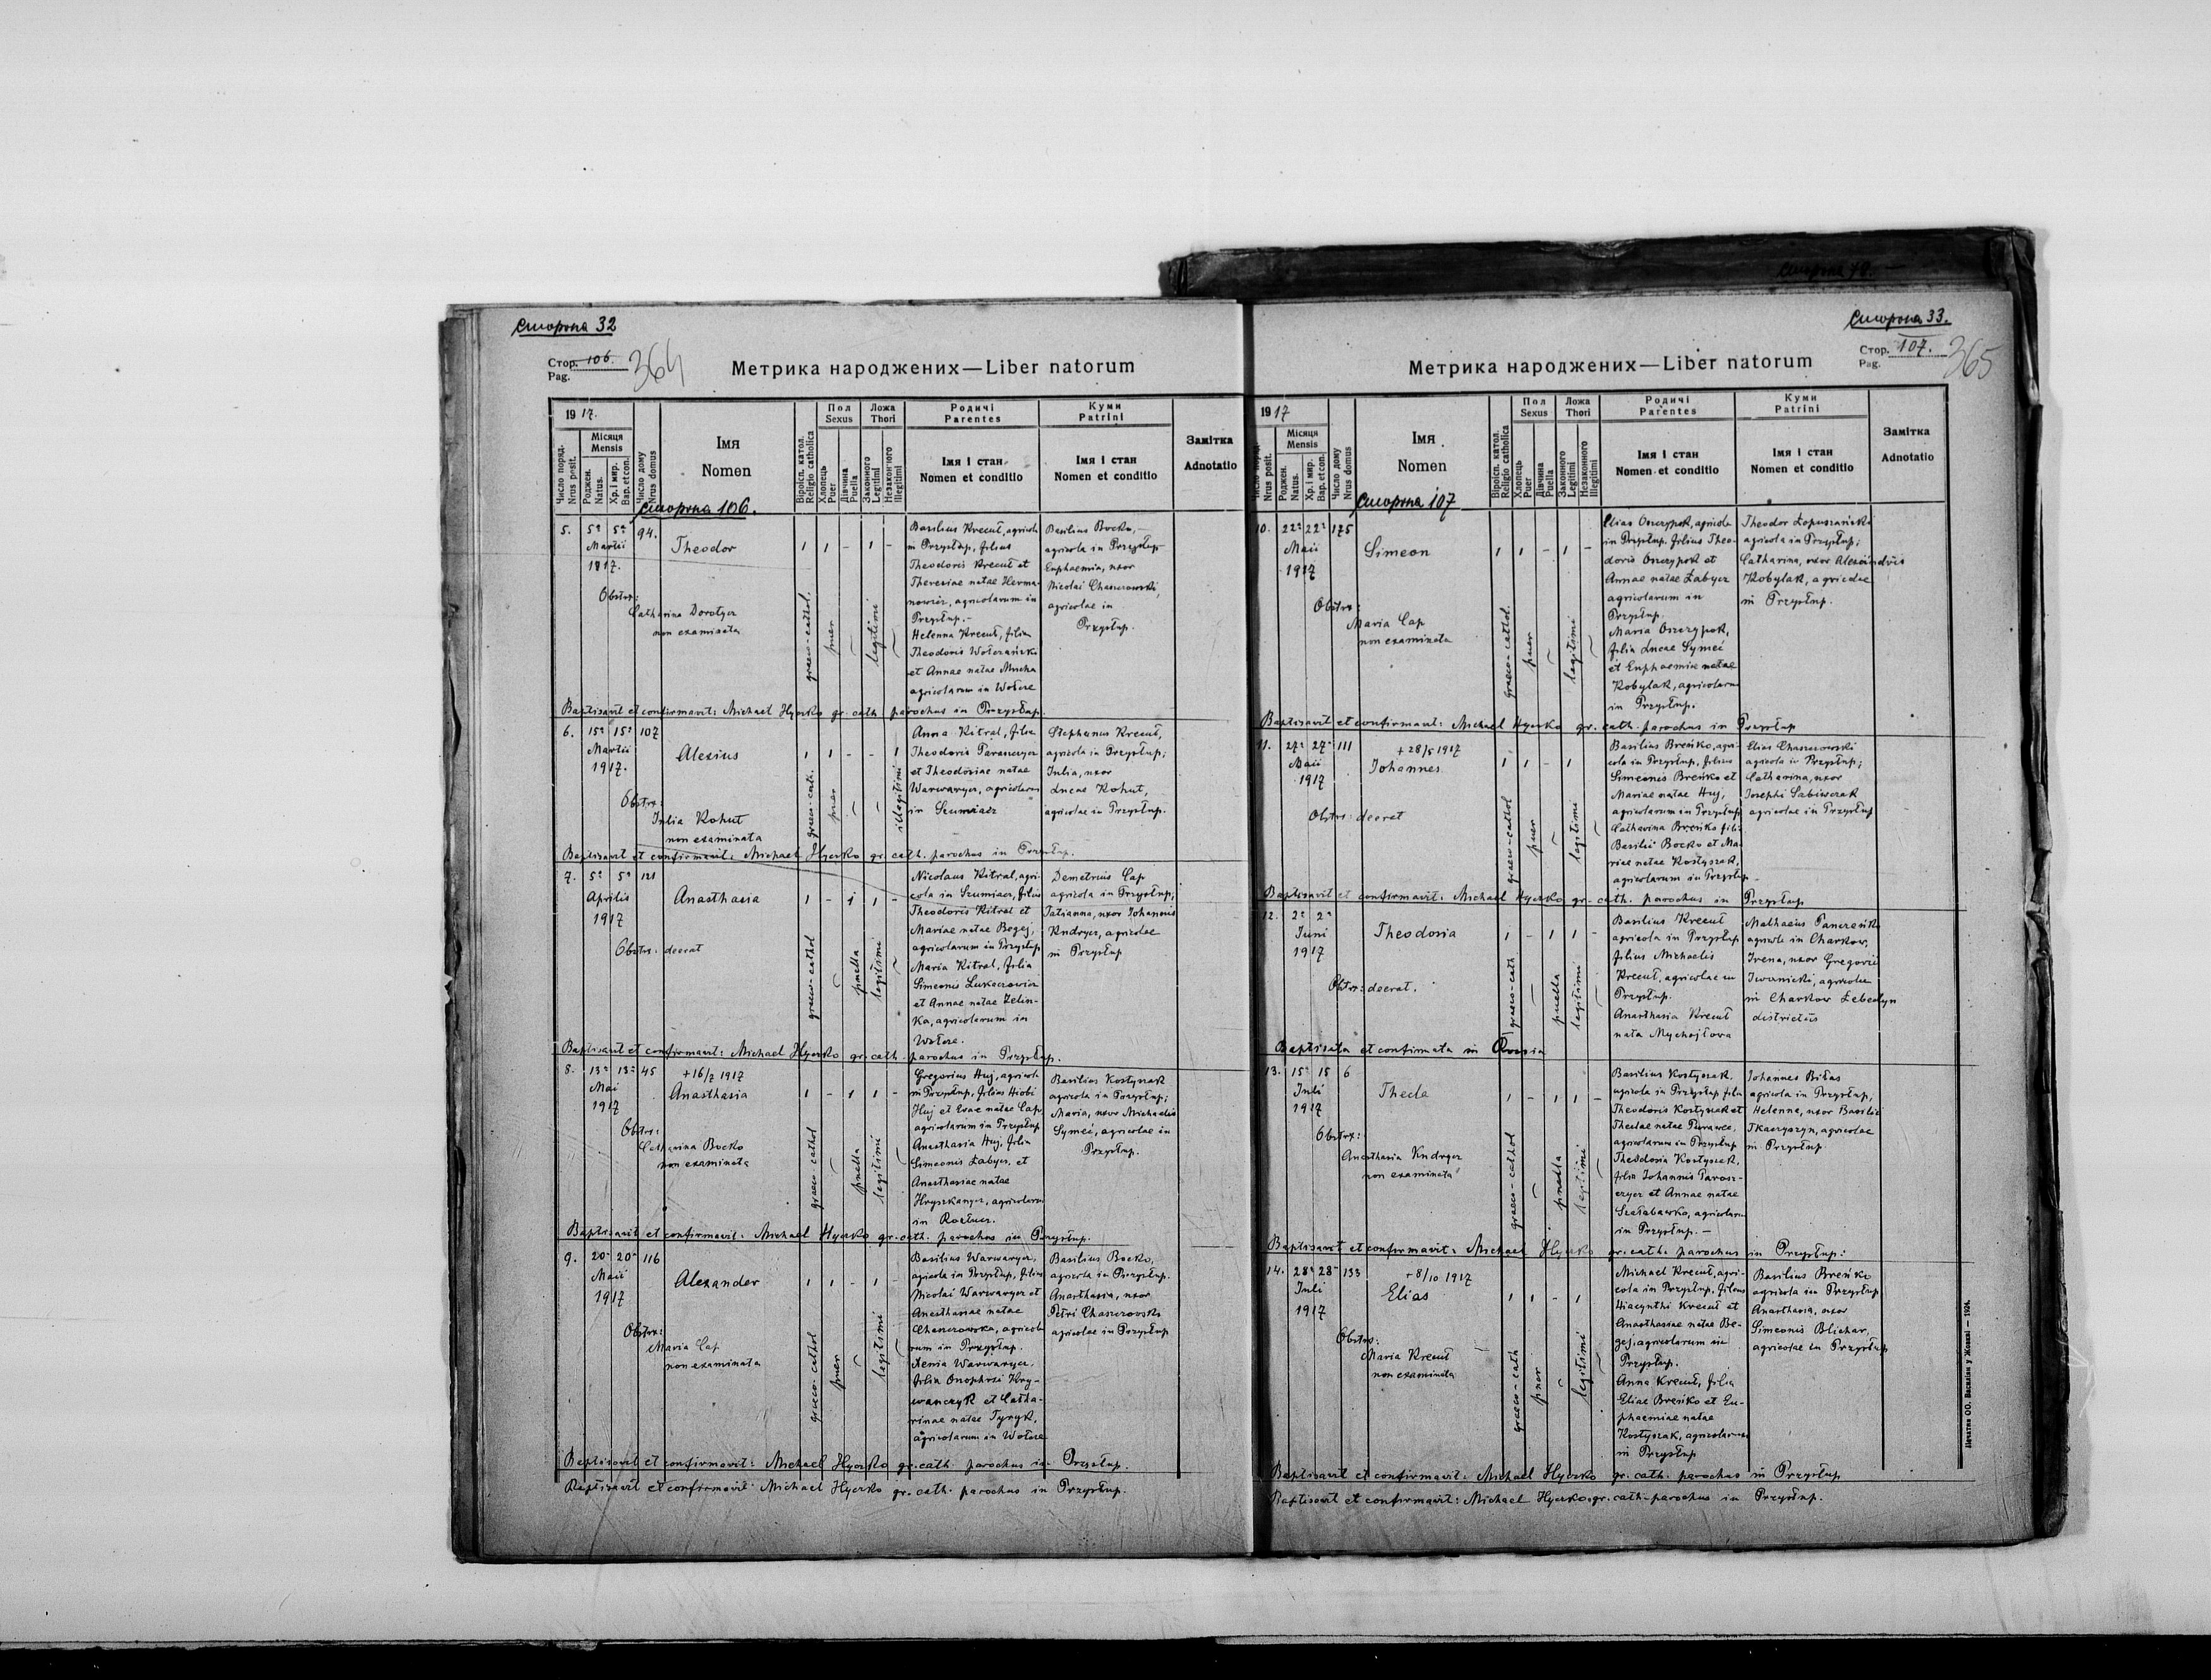 Сторона 32
Стор. 106.
Pag.
364
Метрика народжених — Liber natorum
1917.
Число поряд.
Nrus posit.
Місяця
Mensis
Роджен.
Natus.
Хр. і мир.
Bap. et con.
Число дому
Nrus domus
Імя
Nomen
Віроісп. катол.
Religio catholica
Пол
Sexus
Хлопець
Puer
Дівчина
Puella
Ложа
Thori
Законного
Legitimi
Незаконного
Illegitimi
Родичі
Parentes
Імя і стан
Nomen et conditio
Куми
Patrini
Імя і стан
Nomen et conditio
Замітка
Adnotatio
Сторона 106.
5. 5ª 5ª 94.
Martii
1917.
Theodor
1 1 - 1 -
Obstrx:
Catharina Dorotyer
non examinata
graeco-cathol.
puer
legitimi
Basilius Krecuł, agricola
in Przysłup, filius
Theodoris Krecuł et
Theresiae natae Herma-
nowicz, agricolarum in
Przysłup.-
Helenna Krecuł, filia
Theodoris Wołczańsko
et Annae natae Mucha
agricolarum in Wołcze
Basilius Bocko,
agricola in Przysłup
Euphaemia, uxor
Nicolai Chaszczowski,
agricolae in
Przysłup.
Baptisavit et confirmavit: Michael Hyczko gr. cath. parochus in Przysłup.
6. 15ª 15ª 107
Martii
1917.
Alexius
1 1 - - 1
Obstrx:
Julia Kohut
non examinata
graeco-cath.
puer
illegitimi
Anna Kitral, filia
Theodoris Paraszczyn
et Theodosiae natae
Warwaryer, agricolarum
in Szumiacz
Stephanus Krecuł,
agricola in Przysłup;
Julia, uxor
Lucae Kohut,
agricolae in Przysłup.
Baptisavit et confirmavit: Michael Hyczko gr. cath. parochus in Przysłup.
7. 5ª 5ª 121
Aprilis
1917
Anasthasia
1 - 1 1 -
Obstrx: deerat
graeco-cathol
puella
legitimi
Nicolaus Kitral, agri-
cola in Szumiacz, filius
Theodoris Kitral et
Mariae natae Begej,
agricolarum in Przysłup
Maria Kitral, filia
Simeonis Lukaczowicz
et Annae natae Zelin-
ka, agricolarum in
Wołcze.
Demetrius Cap
agricola in Przysłup;
Tatianna, uxor Johannis
Kudryer, agricolae
in Przysłup
Baptisavit et confirmavit: Michael Hyczko gr. cath. parochus in Przysłup.
8. 13ª 13ª 45
Mai
1917
+16/7 1917
Anasthasia
1 - 1 1 -
Obstrx:
Catharina Bocko
non examinata
graeco cathol
puella
legitimi
Gregorius Huj, agricola
in Przysłup, filius Hiobi
Huj et Evae natae Cap,
agricolarum in Przysłup
Anasthasia Huj, filia
Simeonis Łabyer, et
Anasthasiae natae
Hryszkanyer, agricolarum
in Rozłucz.
Basilius Kostyszak
agricola in Przysłup;
Maria, uxor Michaelis
Symei, agricolae in
Przysłup.
Baptisavit et confirmavit: Michael Hyczko gr. cath. parochus in Przysłup.
9. 20ª 20ª 116
Maii
1917
Alexander
1 1 - 1 -
Obstrx:
Maria Cap
non examinata
graeco-cathol
puer
legitimi
Basilius Warwaryer,
agricola in Przysłup, filius
Nicolai Warwaryer et
Anasthasiae natae
Chaszczowska, agricola-
rum in Przysłup.
Xenia Warwaryer,
filia Onophrii Kry-
wanczyk et Catha-
rinae natae Tyryk,
agricolarum in Wołcze
Basilius Bocko,
agricola in Przysłup.
Anasthasia, uxor
Petri Chaszczowski
agricolae in Przysłup
Baptisavit et confirmavit: Michael Hyczko gr. cath. parochus in Przysłup.
Baptisavit et confirmavit: Michael Hyczko gr. cath. parochus in Przysłup.
Сторона 33.
Стор. 107.
Pag.
365
Метрика народжених — Liber natorum
1917
Число поряд.
Nrus posit.
Місяця
Mensis
Роджен.
Natus.
Хр. і мир.
Bap. et con.
Число дому
Nrus domus
Імя
Nomen
Віроісп. катол.
Religio catholica
Пол
Sexus
Хлопець
Puer
Дівчина
Puella
Ложа
Thori
Законного
Legitimi
Незаконного
Illegitimi
Родичі
Parentes
Імя і стан
Nomen et conditio
Куми
Patrini
Імя і стан
Nomen et conditio
Замітка
Adnotatio
Сторона 107
10. 22ª 22ª 175
Maii
1917
Simeon
1 1 - 1 -
Obstrx:
Maria Cap
non examinata
graeco-cathol.
puer
legitimi
Elias Oszczypok, agricola
in Przysłup, filius Theo-
doris Oszczypok et
Annae natae Łabyer
agricolarum in
Przysłup.
Maria Oszczypok,
filia Lucae Symei
et Euphaemiae natae
Kobylak, agricolarum
in Przysłup.
Theodor Łopuszański
agricola in Przysłup;
Catharina, uxor Alexandris
Kobylak, agricolae
in Przysłup.
Baptisavit et confirmavit: Michael Hyczko gr. cath. parochus in Przysłup
11. 27ª 27ª 111
Maii
1917
+28/5 1917
Johannes
1 1 - 1
Obstrx: deerat
graeco-cathol
puer
legitimi
Basilius Breńko, agri-
cola in Przysłup, filius
Simeonis Breńko et
Mariae natae Huj,
agricolarum in Przysłup
Catharina Breńko filia
Basilii Bocko et Ma-
riae natae Kostyszak,
agricolarum in Przysłup
Elias Chaszczowski
agricola in Przysłup;
Catharina, uxor
Josephi Sabiwczak
agricolae in Przysłup
Baptisavit et confirmavit: Michael Hyczko gr. cath. parochus in Przysłup
12. 2ª 2ª
Juni
1917
Theodosia
1 - 1 1 -
Obstrx: deerat.
graeco-cath
puella
legitimi
Basilius Krecuł
agricola in Przysłup
filius Michaelis
Krecuł, agricolae in
Przysłup.
Anasthasia Krecuł
nata Mychajłowa
Mathaeus Panczenko
agricola in Charkow,
Irena, uxor Gregorii
Iwanicki, agricolae
in Charkow Lebedyn
districtûs
Baptisata et confirmata in Rossia
13. 15ª 15 6
Juli
1917
Thecla
1 - 1 1 -
Obstrx:
Anasthasia Kudryer
non examinata
graeco-cathol
puella
legitimi
Basilius Kostyszak,
agricola in Przysłup filius
Theodoris Kostyszak et
Theclae natae Purawec,
agricolarum in Przysłup
Theodosia Kostyszak,
filia Johannis Parasz-
czyer et Annae natae
Szałabawko, agricolarum
in Przysłup. -
Johannes Biłas
agricola in Przysłup,
Helenna, uxor Basilii
Tkaczyszyn, agricolae
in Przysłup
Baptisavit et confirmavit: Michael Hyczko gr. cath. parochus in Przysłup:
14. 28ª 28ª 133
Juli
1917
+8/10 1917
Elias
1 1 - 1
Obstrx:
Maria Krecuł
non examinata
graeco-cath
puer
legitimi
Michael Krecuł, agri-
cola in Przysłup, filius
Hiacynthi Krecuł et
Anasthasiae natae Be-
gej, agricolarum in
Przysłup.
Anna Krecuł, filia
Eliae Breńko et Eu-
phaemiae natae
Kostyszak, agricolarum
in Przysłup
Basilius Breńko
agricola in Przysłup
Anasthasia, uxor
Simeonis Blichar,
agricolae in Przysłup
Baptisavit et confirmavit: Michael Hyczko gr. cath. parochus in Przysłup
Baptisavit et confirmavit: Michael Hyczko gr. cath. parochus in Przysłup.
Печатня ОО. Василіян у Жовкві — 1924.